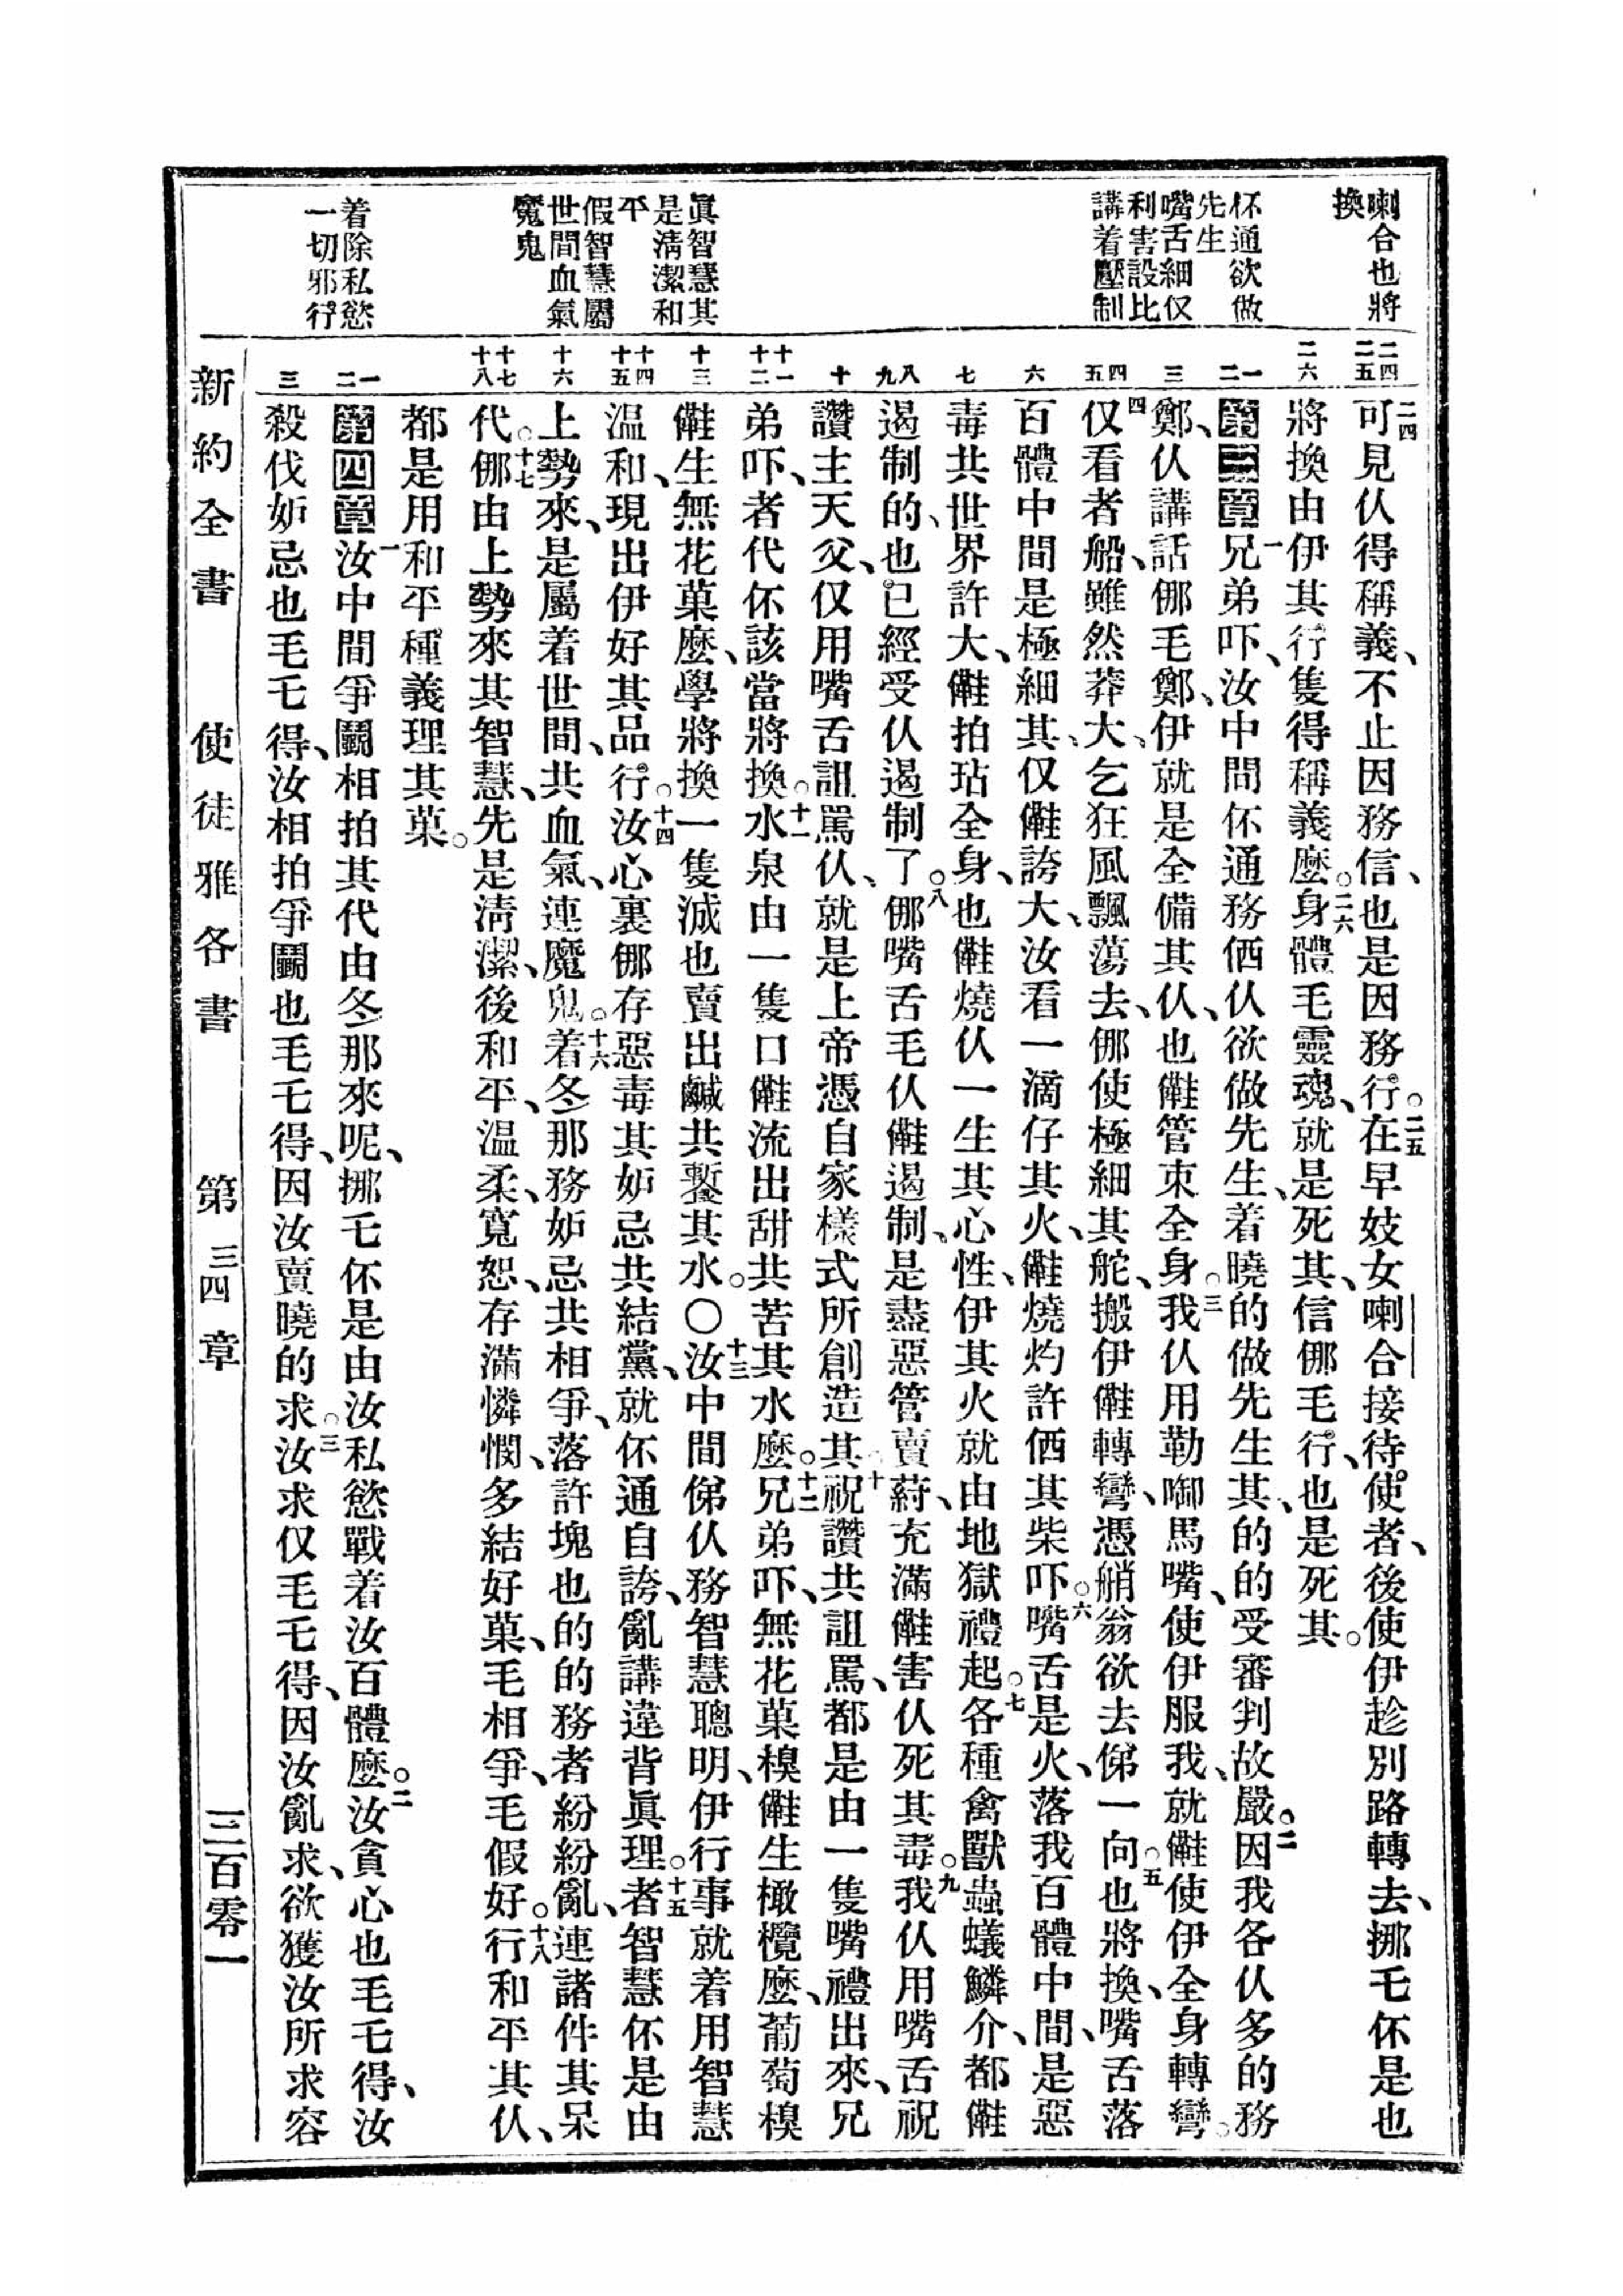 喇合也將
換
伓通欲做
先生
嘴舌細仅
利害設比
講着壓制
眞智慧其
是淸潔和
平
假智慧屬
世間血氣
魔鬼
着除私慾
一切邪行
二四 二五
二六
一 二
三
四 五
六
七
八 九
十
十一 十二
十三
十四 十五
十六
十七 十八
一 二
三
二四可見仈得稱義、不止因務信、也是因務行。二五在早妓女喇合接待使者、後使伊趁別路轉去、挪乇伓是也
將換由伊其行隻得稱義麽。二六身體毛靈魂、就是死其、信𠆧毛行、也是死其。
第三章一兄弟吓、汝中間伓通務価仈欲做先生、着曉的做先生其、的的受審判故嚴。二因我各仈多的務
鄭、仈講話𠆧毛鄭、伊就是全備其仈、也㑚管束全身。三我仈用勒啣馬嘴、使伊服我、就㑚使伊全身轉彎。
四仅看者船、雖然莽大、乞狂風飄蕩去、𠆧使極細其舵、搬伊㑚轉彎、憑艄翁欲去俤一向。五也將換、嘴舌落
百體中間是極細其、仅㑚誇大、汝看一滴仔其火、㑚燒灼許価其柴吓。六嘴舌是火、落我百體中間、是惡
毒共世界許大、㑚拍玷全身、也㑚燒仈一生其心性、伊其火就由地獄禮起。七各種禽獸蟲蟻鱗介、都㑚
遏制的、也已經受仈遏制了。八𠆧嘴舌毛仈㑚遏制、是盡惡管賣葤、充滿㑚害仈死其毒。九我仈用嘴舌祝
讚主天父、仅用嘴舌詛罵仈、就是上帝憑自家樣式所創造其。十祝讚共詛罵、都是由一隻嘴禮出來、兄
弟吓、者代伓該當將換。十一水泉由一隻口㑚流出甜共苦其水麽。十二兄弟吓、無花菓樹㑚生橄欖麽、葡萄樹
㑚生無花菓麽、學將換一隻滅也賣出鹹共鏨其水。〇十三汝中間俤仈務智慧聰明、伊行事就着用智慧
温和、現出伊好其品行。十四汝心裏𠆧存惡毒其妒忌共結黨、就伓通自誇、亂講違背眞理。十五者智慧伓是由
上勢來、是屬着世間、共血氣、連魔鬼。十六着冬那務妒忌共相爭、落許塊也的的務者紛紛亂、連諸件其呆
代。十七𠆧由上勢來其智慧、先是淸潔、後和平、温柔、寬恕、存滿憐憫、多結好菓、毛相爭、毛假好。十八行和平其仈、
都是用和平種義理其菓。
第四章一汝中間爭鬭相拍其代由冬那來呢、挪乇伓是由汝私慾戰着汝百體麽。二汝貪心也毛乇得、汝
殺伐妒忌也毛乇得、汝相拍爭鬭也毛乇得、因汝賣曉的求。三汝求仅毛乇得、因汝亂求、欲獲汝所求容
新約全書　使徒雅各書　第三四章　三百零一